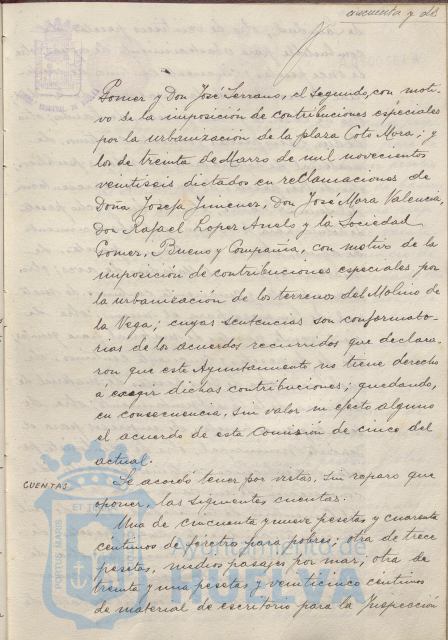 cincuenta y dos
Gomer y Don José Serrano, el segundo, con moti-
vo de la imposición de contribuciones especiales
por la urbanización de la plaza Coto Mora; y
los de treinta de Marzo de mil novecientos
veintiseis dictados en reclamaciones de
Doña Josefa Jimenez, Don José Mora Valencia,
Don Rafael Lopez y la Sociedad
Gomer, Bueno y Compañia, con motivo de la
imposición de contribuciones especiales por
la urbanización de los terrenos del Molino de
la Vega; cuyas sentencias son conformato-
rias de los acuerdos recurridos que declara-
ron que este Ayuntamiento no tiene derecho
á exigir dichas contribuciones; quedando,
en consecuencia, sin valor ni efecto alguno
el acuerdo de esta Comisión de cinco del
actual.
CUENTAS
Se acordó tener por vistas, sin reparo que
oponer, las siguientes cuentas:
Una de cincuenta y nueve pesetas y cuarenta
céntimos de feretro para pobres; otra de trece
pesetas, medios pasajes por mar; otra de
treinta y una pesetas y veinticinco céntimos
de material de escritorio para la Inspección
PORTUS MARIS
Ayuntamiento de
HUELVA